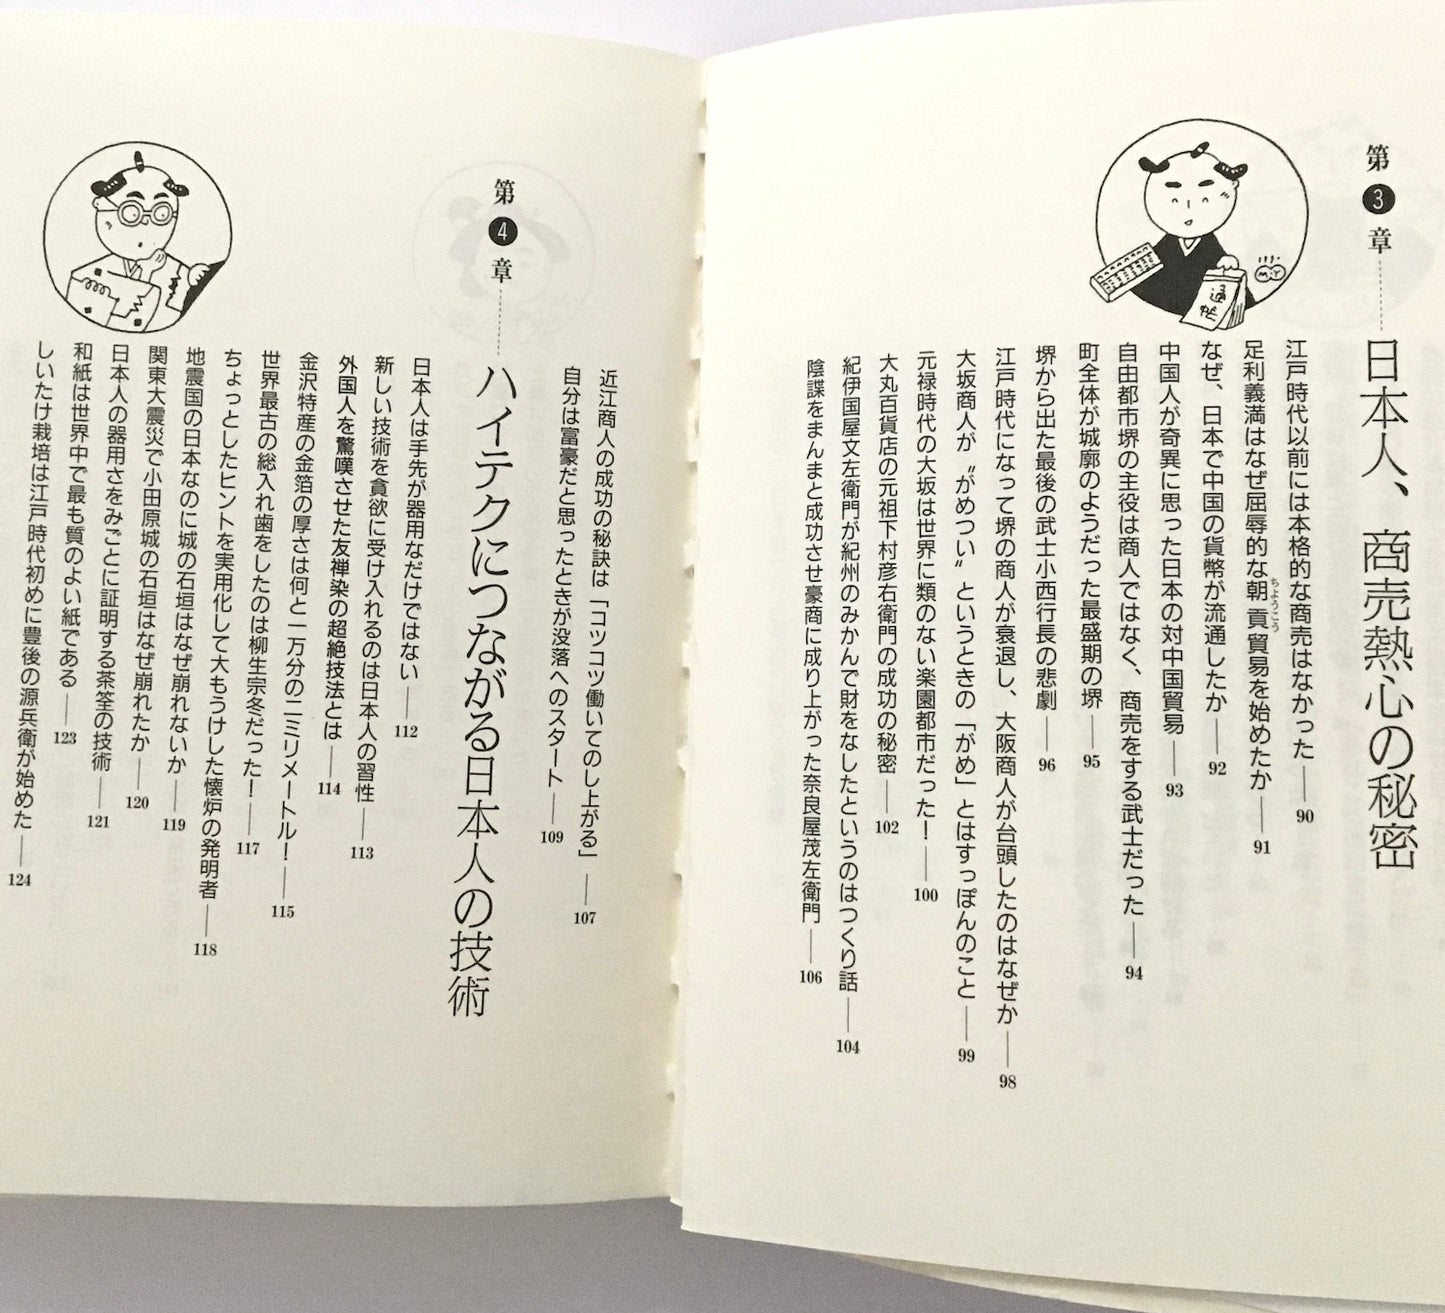 第3章
日本人、商売熱心の秘密
通帳
江戸時代以前には本格的な商売はなかった——90
足利義満はなぜ屈辱的な朝貢貿易を始めたか——91
ちょうこう
なぜ、日本で中国の貨幣が流通したか——92
中国人が奇異に思った日本の対中国貿易——93
自由都市堺の主役は商人ではなく、商売をする武士だった——94
町全体が城廓のようだった最盛期の堺——95
堺から出た最後の武士小西行長の悲劇——96
江戸時代になって堺の商人が衰退し、大阪商人が台頭したのはなぜか——98
大坂商人が〝がめつい〟というときの「がめ」とはすっぽんのこと——99
元禄時代の大坂は世界に類のない楽園都市だった！——100
大丸百貨店の元祖下村彦右衛門の成功の秘密——102
紀伊国屋文左衛門が紀州のみかんで財をなしたというのはつくり話——104
陰謀をまんまと成功させ豪商に成り上がった奈良屋茂左衛門——106
近江商人の成功の秘訣は「コツコツ働いてのし上がる」——107
自分は富豪だと思ったときが没落へのスタート——109
第4章
ハイテクにつながる日本人の技術
日本人は手先が器用なだけではない——112
新しい技術を貪欲に受け入れるのは日本人の習性——113
外国人を驚嘆させた友禅染の超絶技法とは——114
金沢特産の金箔の厚さは何と一万分の二ミリメートル！——115
世界最古の総入れ歯をしたのは柳生宗冬だった！——117
ちょっとしたヒントを実用化して大もうけした懐炉の発明者——118
地震国の日本なのに城の石垣はなぜ崩れないか——119
関東大震災で小田原城の石垣はなぜ崩れたか——120
日本人の器用さをみごとに証明する茶筌の技術——121
和紙は世界中で最も質のよい紙である——123
しいたけ栽培は江戸時代初めに豊後の源兵衛が始めた——124